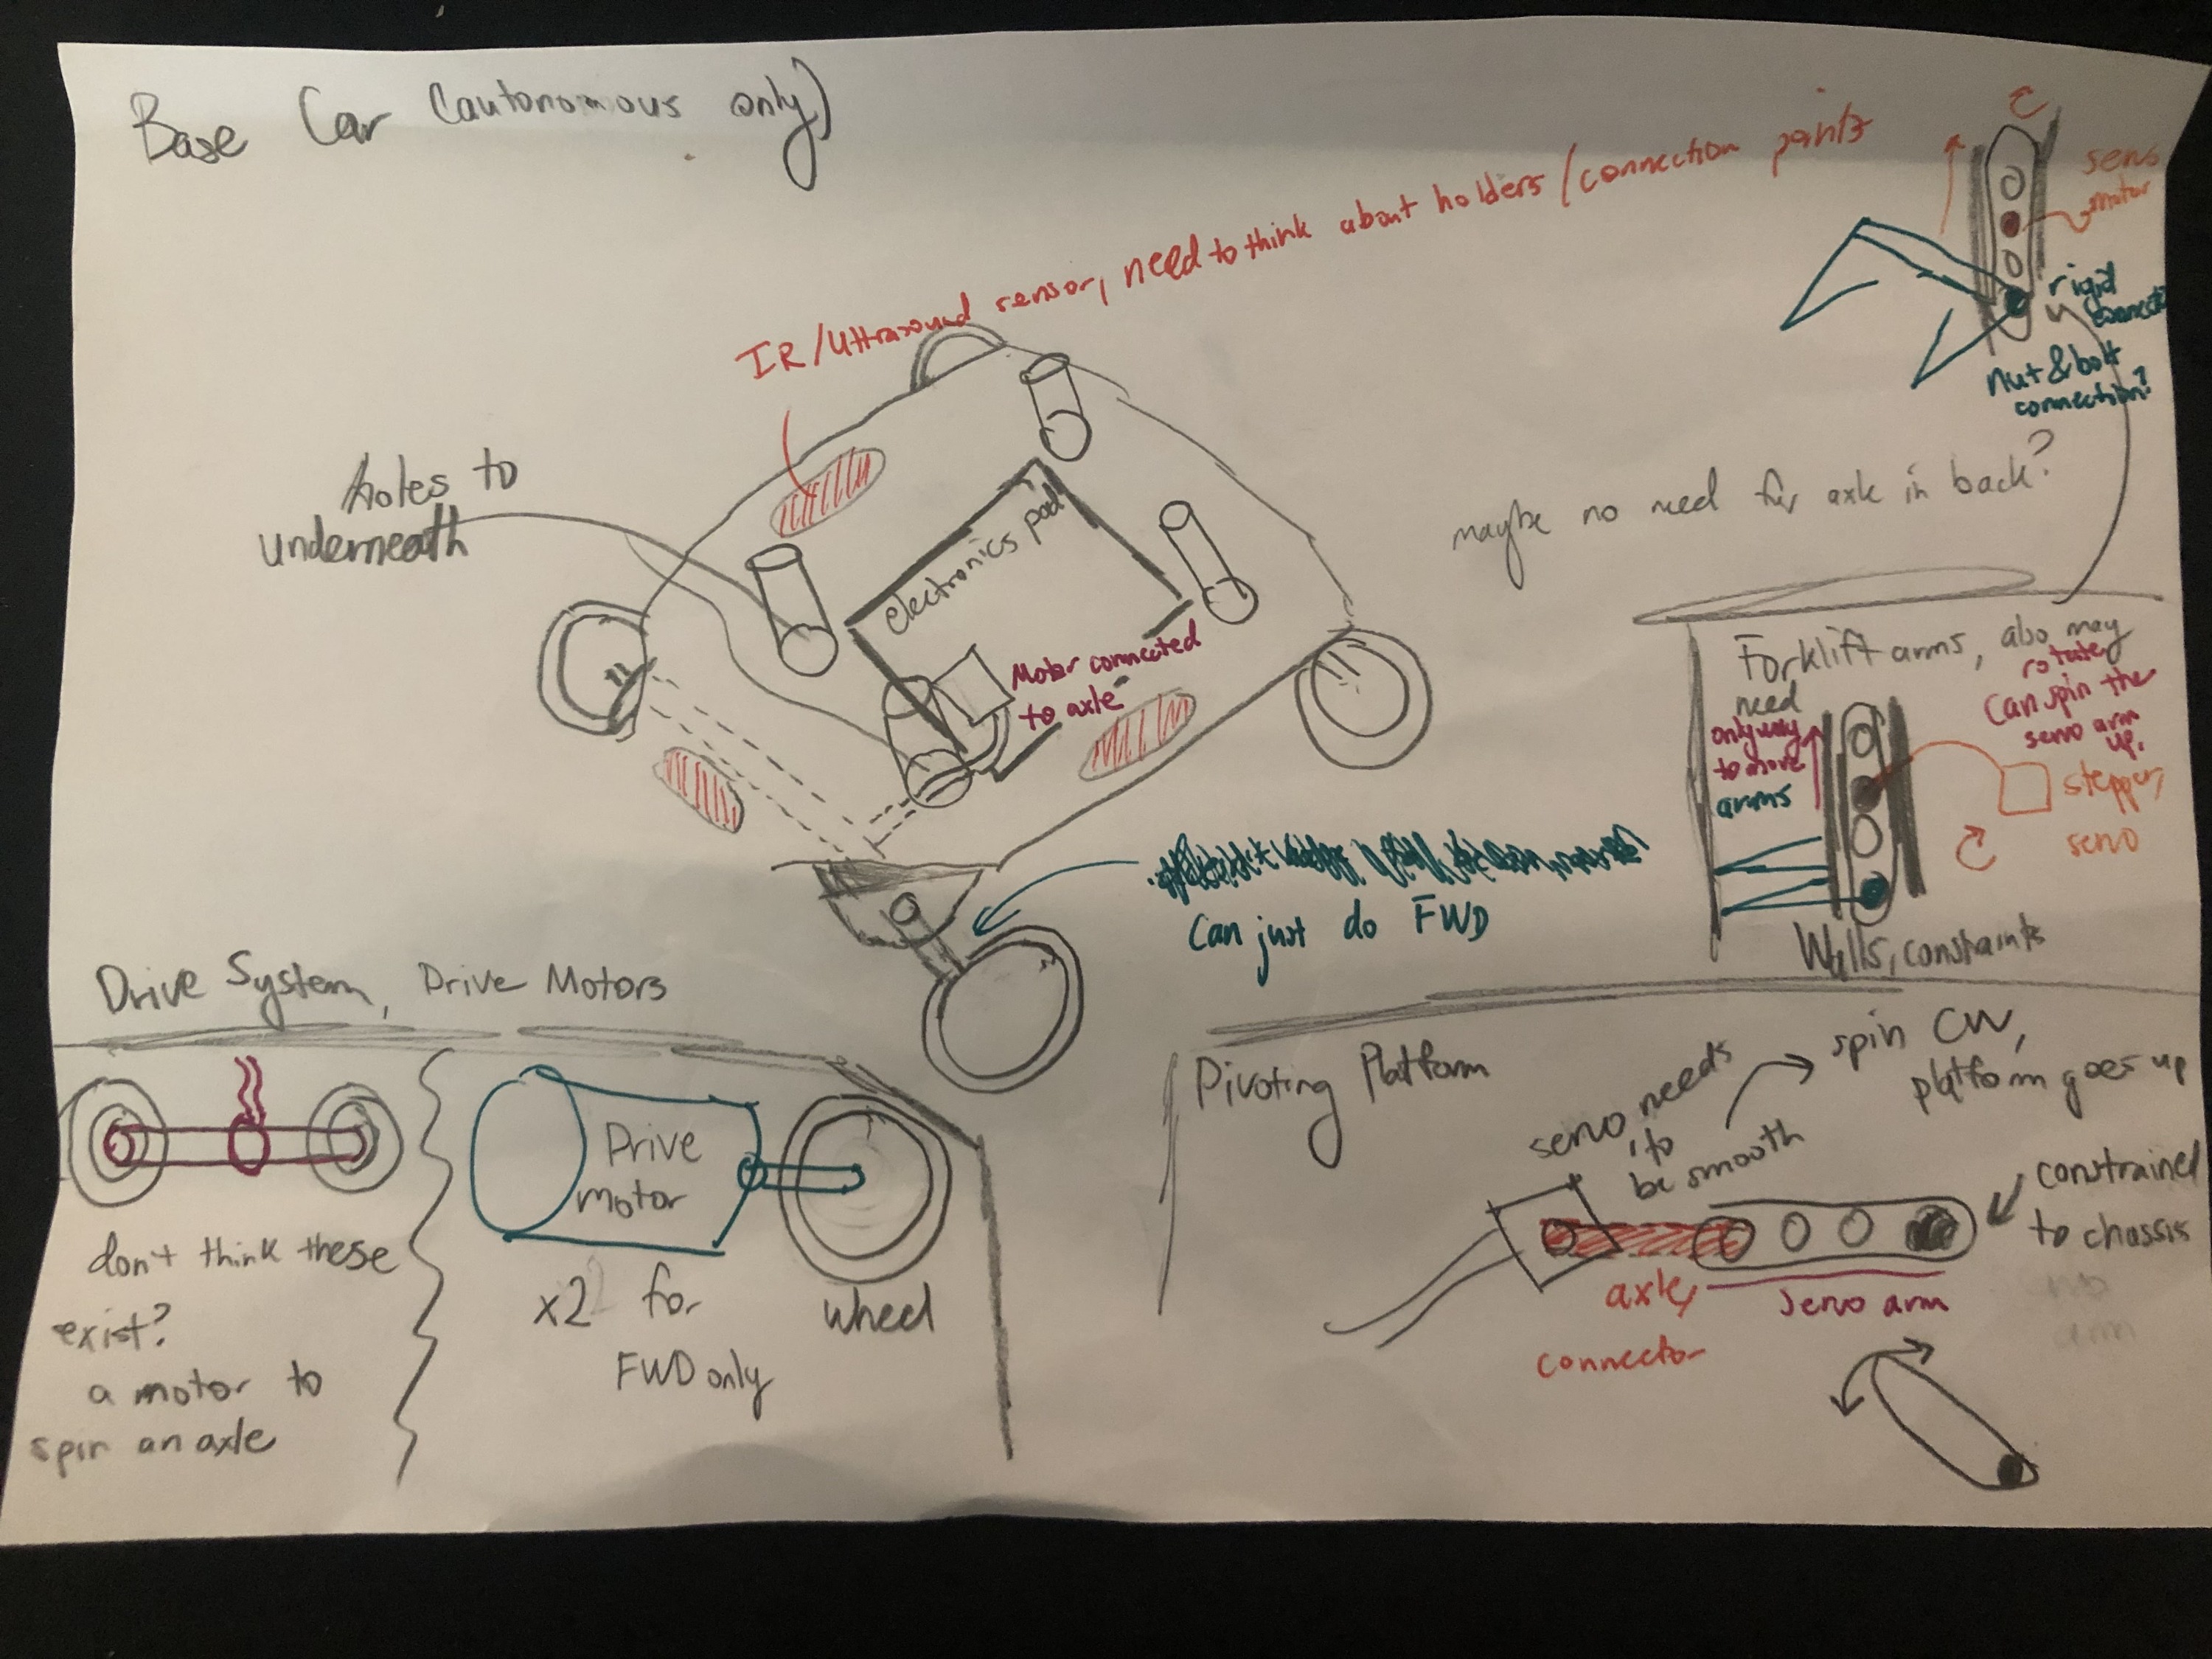 Base Car (autonomous only)
IR/Uttrasound sensor, need to think about holders/connection points
servo
motor
rigid
Nut & bolt
connection?
Holes to
underneath
electronics pod
Motor connected
to axle
maybe no need for axle in back?
Forklift arms, also may
need
rotate,
Can spin the
servo arm
up.
only way
to move
arms
stepper,
servo
Walls, constraints
Can just do FWD
Drive System, Drive Motors
don't think these
exist?
a motor to
spin an axle
Drive
motor
x2 for
FWD only
wheel
Pivoting Platform
servo needs
to
be smooth
spin CW,
platform goes up
constrained
to chassis
axle,
connector
servo arm